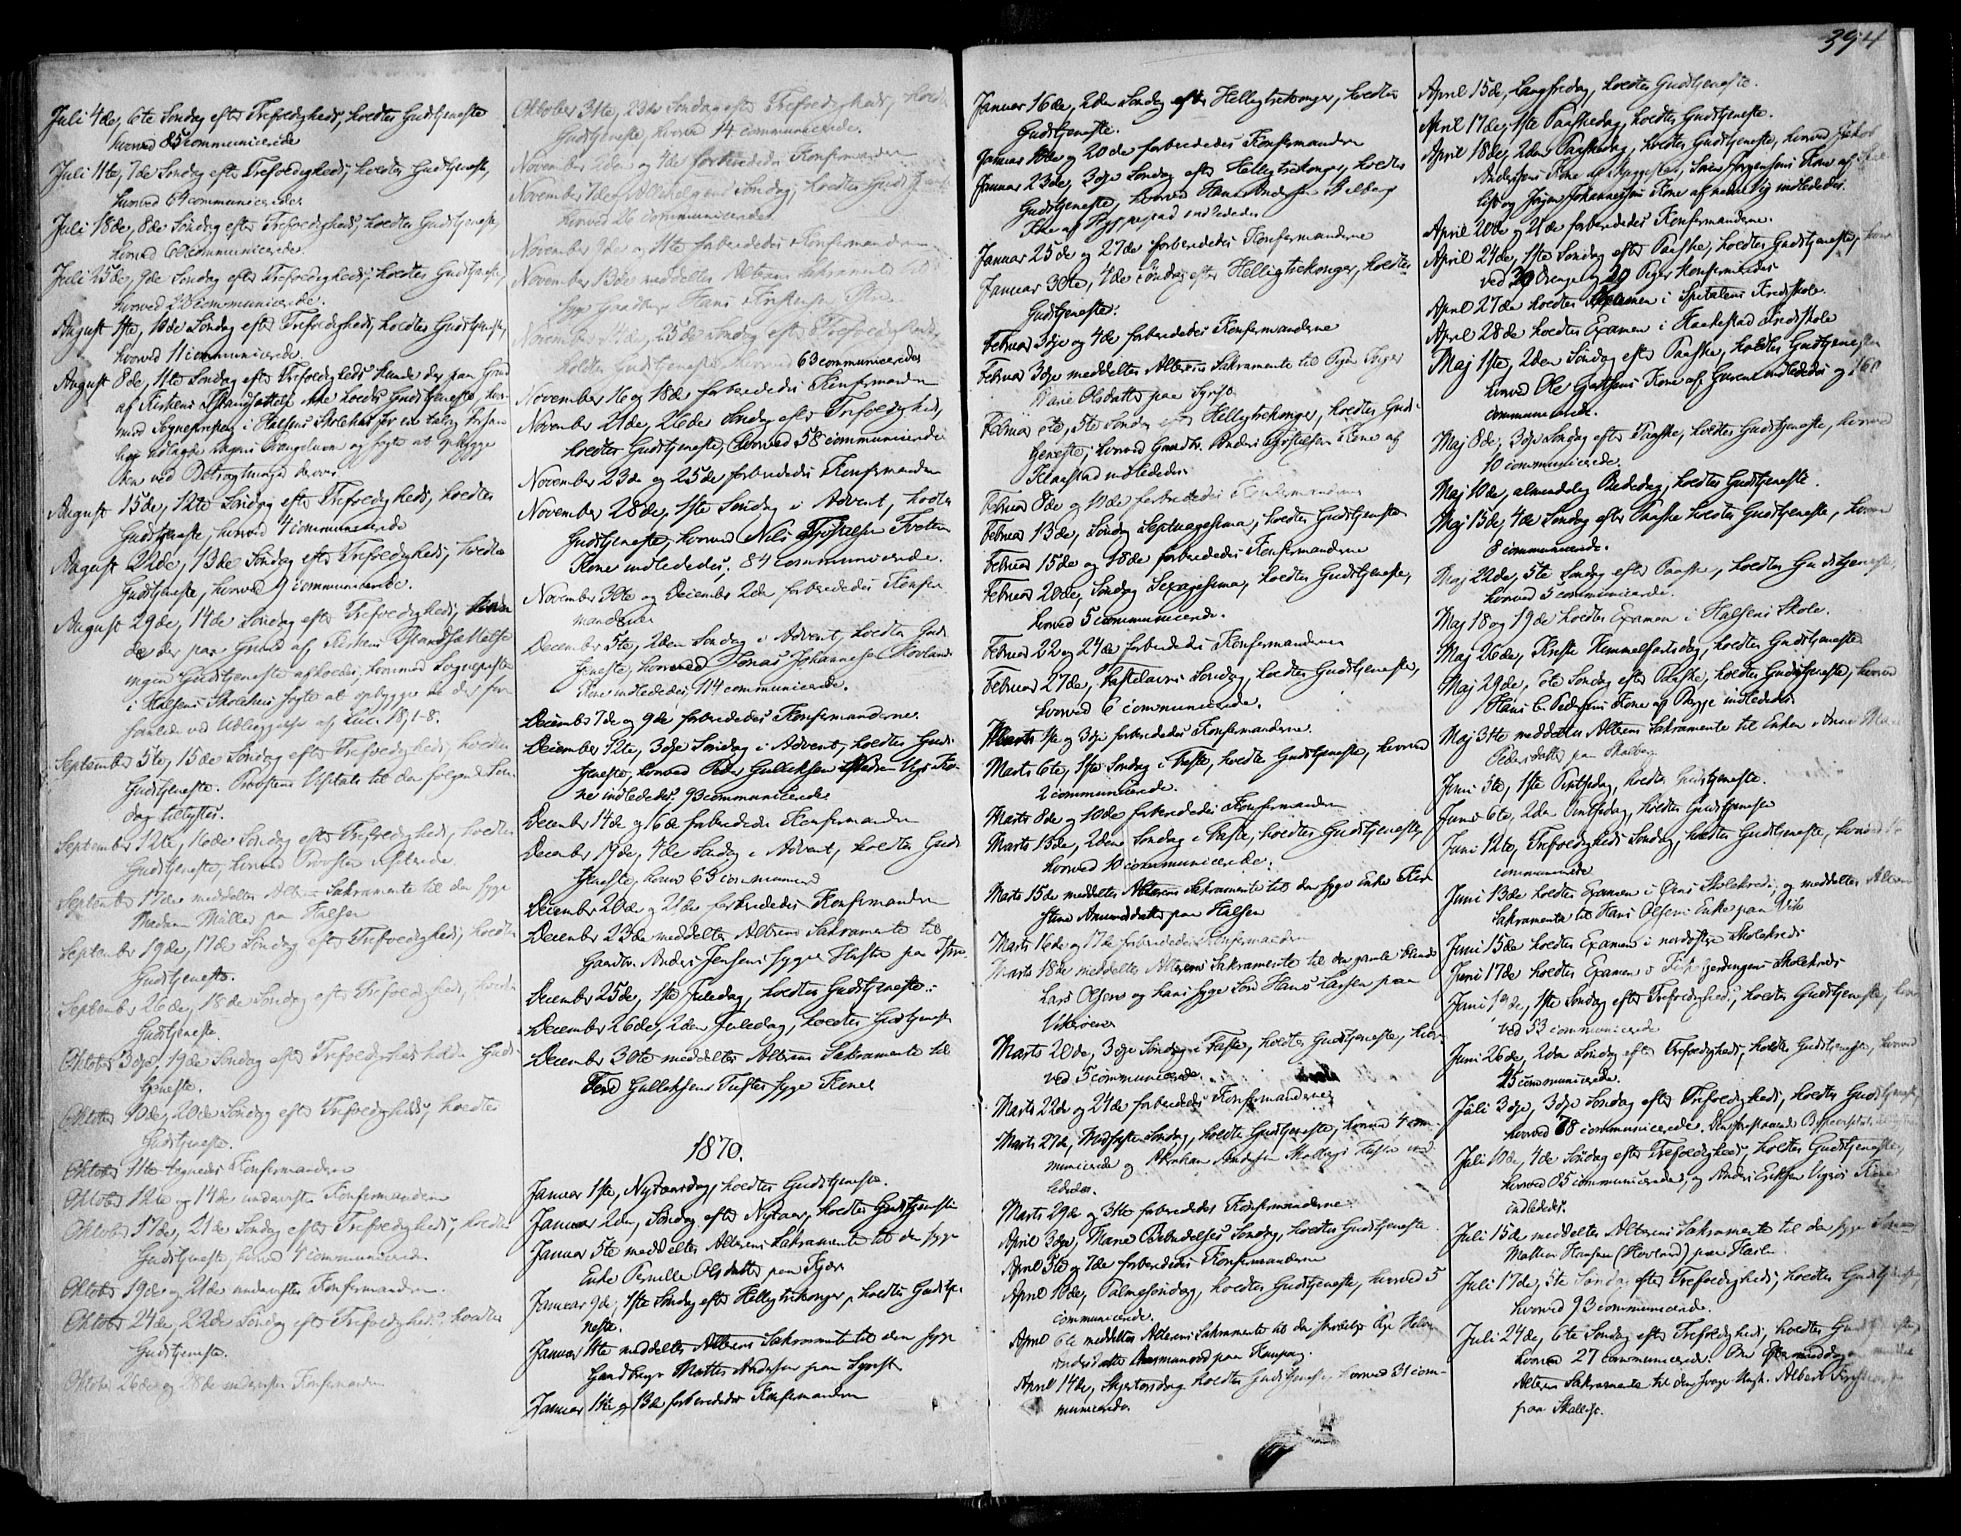 Juli 4de, 6te Søndag efter Trefoldighed, holdtes Gudstjeneste
hvorved 85 communicerede
Juli 11te, 7de Søndag efter Trefoldighed, holdtes Gudstjeneste,
hvorved 64 communicerede.
Juli 18de, 8de Søndag efter Trefoldighed, holdtes Gudstjeneste,
hvorved 60 communicerede.
Juli 25de, 9de Søndag efter Trefoldighed, holdtes Gudstjeneste,
hvorved 28 communicerede.
August 1ste, 10de Søndag efter Trefoldighed, holdtes Gudstjeneste,
hvorved 11 communicerede.
August 8de, 11te Søndag efter Trefoldighed kunde der paa Grund
af Kirkens Istandsættelse ikke holdes Gudstjeneste, hvor-
mod Sognepresten i Halsens Skolehus for en talrig Forsam
ling udlagde Dagens Evangelium og søgte at opbygge
den ved Betragtninger derover.
August 15de, 12te Søndag efter Trefoldighed, holdtes
Gudstjeneste, hvorved 4 communicerede
August 22de, 13de Søndag efter Trefoldighed, holdtes
Gudstjeneste, hvorved 9 communicerede.
August 29de, 14de Søndag efter Trefoldighed,
der paa Grund af Kirkens Istandsættelse
ingen Gudstjeneste afholdes, hvormod Sognepresten
i Halsens Skolehus søgte at opbygge de der for
samlede ved Udlæggelse af Luc. 18,1-8.
September 5te, 15de Søndag efter Trefoldighed, holdtes
Gudstjeneste. Provstens Visitats til den følgende Søn
dag tillystes.
September 12te, 16de Søndag efter Trefoldighed, holdtes
Gudstjeneste, hvorved Provsten visiterede.
September 17de meddeltes Alterens Sakramente til den syge
Madam Müller paa Halsen
September 19de, 17de Søndag efter Trefoldighed, holdtes
Gudstjeneste.
September 26de, 18de Søndag efter Trefoldighed, holdtes
Gudstjeneste.
Oktober 3die, 19de Søndag efter Trefoldighed holdtes Guds
tjeneste.
Oktober 10de, 20de Søndag efter Trefoldighed, holdtes
Gudstjeneste.
Oktober 11te tegnedes Konfirmanderne
Oktober 12te og 14de undervistes Konfirmanderne
Oktober 17de, 21de Søndag efter Trefoldighed, holdtes
Gudstjeneste, hvorved 4 communicerede
Oktober 19de og 21de undervistes Konfirmanderne.
Oktober 24de, 22de Søndag efter Trefoldighed, holdtes
Gudstjeneste.
Oktober 26de og 28de undervistes Konfirmanderne
Oktober 31te, 23de Søndag efter Trefoldighed, holdtes
Gudstjeneste, hvorved 14 communicerede.
November 2den og 4de forberededes Konfirmanderne
November 7de, Allehelgens Søndag, holdtes Gudstjeneste
hvorved 26 communicerede.
November 9de og 11te forberededes Konfirmanderne
November 13de meddeltes Alterens Sakramente til
syge Gaardbr. Hans
November 14de, 25de Søndag efter Trefoldighed,
holdtes Gudstjeneste, hvorved 63 communicerede
November 16 og 18de forberededes Konfirmanderne
November 21de, 26de Søndag efter Trefoldighed,
holdtes Gudstjeneste, hvorved 58 communicerede
November 23de og 25de forberededes Konfirmanderne
November 28de, 1ste Søndag i Advent, holdtes
Gudstjeneste, hvorved Nils
Kone indlededes, 84 communicerede.
November 30te og December 2den forberededes Konfir
manderne
December 5te, 2den Søndag i Advent, holdtes Guds
tjeneste, hvorved Jonas Johannesen Hovlands
Kone indlededes, 114 communicerede.
December 7de og 9de forberededes Konfirmanderne.
December 12te, 3die Søndag i Advent, holdtes Guds
tjeneste, hvorved Peder Gulliksen Ko-
ne indlededes, 93 communicerede
December 14de og 16de forberededes Konfirmanderne
December 19de, 4de Søndag i Advent, holdtes Guds
tjeneste, hvorved 63 communicerede
December 20de og 21de forberededes Konfirmanderne
December 23de meddeltes Alterens Sakramente til
Gaardbr. Anders Jensens syge
December 25de, 1ste Juledag, holdtes Gudstjeneste.
December 26de, 2den Juledag, holdtes Gudstjeneste
December 30te meddeltes Alterens Sakramente til
Gulliksens syge Kone
1870.
Januar 1ste, Nytaarsdag, holdtes Gudstjeneste.
Januar 2den, Søndag efter Nytaar, holdtes Gudstjeneste
Januar 5te meddeltes Alterens Sakramente til den syge
Enke Pernille Olsdatter paa
Januar 9de, 1ste Søndag efter Helligtrekonger, holdtes Gudstje
neste.
Januar 11te meddeltes Alterens Sakramente til den syge
Gaardbruger Mathis Andersen paa
Januar 11te og 13de forberededes Konfirmanderne
394
Januar 16de, 2den Søndag efter Helligtrekonger, holdtes
Gudstjeneste.
Januar 18de og 20de forberededes Konfirmanderne
Januar 23de, 3die Søndag efter Helligtrekonger, holdtes
Gudstjeneste, hvorved Hans Andersen
Kone af indlededes
Januar 25de og 27de forberededes Konfirmanderne
Januar 30te, 4de Søndag efter Helligtrekonger, holdtes
Gudstjeneste.
Februar 3die og 4de forberededes Konfirmanderne
Februar 3die meddeltes Alterens Sakramente til Pigen Inger
Marie Olsdatter paa
Februar 6te, 5te Søndag efter Helligtrekonger, holdtes Guds
tjeneste, hvorved Gaardbr. Anders Kone af
Klaastad indlededes
Februar 8de og 10de forberededes Konfirmanderne
Februar 13de, Søndag Septuagesima, holdtes Gudstjeneste
Februar 15de og 18de forberededes Konfirmanderne
Februar 20de, Søndag Sexagesima, holdtes Gudstjeneste,
hvorved 5 communicerede.
Februar 22 og 24de forberededes Konfirmanderne
Februar 27de, Fastelavns Søndag, holdtes Gudstjeneste,
hvorved 6 communicerede.
Marts 1ste og 3die forberededes Konfirmanderne.
Marts 6te, 1ste Søndag i Faste, holdtes Gudstjeneste, hvorved
2 communicerede.
Marts 8de og 10de forberededes Konfirmanderne
Marts 13de, 2den Søndag i Faste, holdtes Gudstjeneste,
hvorved 10 communicerede.
Marts 15de meddeltes Alterens Sakramente til den syge Enke Kir
stine Amundsdatter paa Halsen
Marts 16de og 17de forberededes Konfirmanderne
Marts 18de meddeltes Alterens Sakramente til den gamle blinde
Lars Olsen og hans syge Søn Hans Larsen paa
Marts 20de, 3die Søndag i Faste, holdtes Gudstjeneste, hvor
ved 5 communicerede.
Marts 22de og 24de forberededes Konfirmanderne
Marts 27de, Midfaste Søndag, holdtes Gudstjeneste, hvorved 4 com
municerede og Abraham Andersen Kone ind
lededes.
Marts 29de og 31te forberededes Konfirmanderne.
April 3die, Mariæ Bebudelses Søndag, holdtes Gudstjeneste.
April 5te og 7de forberededes Konfirmanderne
April 10de, Palmesøndag, holdtes Gudstjeneste, hvorved 5
communicerede.
April 6te meddeltes Alterens Sakramente til den Pige Helene
Andersdatter paa Kaupang.
April 14de, Skjertorsdag holdtes Gudstjeneste, hvorved 31 com-
municerede.
April 15de, Langfredag, holdtes Gudstjeneste.
April 17de, 1ste Paaskedag, holdtes Gudstjeneste.
April 18de, 2den Paaskedag, holdtes Gudstjeneste, hvorved Jakob
Andersens Kone af Sven Jørgensens Kone af
og Jørgen Johannessens Kone af indlededes.
April 20de og 21de forberededes Konfirmanderne.
April 24de, 1ste Søndag efter Paaske, holdtes Gudstjeneste, hvor
ved 20 Drenge og 20 Piger konfirmeredes
April 27de holdtes Examen i Spetalens Kredsskole.
April 28de holdtes Examen i Kredsskole
Maj 1ste, 2den Søndag efter Paaske, holdtes Gudstjeneste
hvorved Ole Kone af indlededes og 160
communicerede.
Maj 8de, 3die Søndag efter Paaske, holdtes Gudstjeneste, hvorved
10 communicerede.
Maj 10de, almindelig Bededag, holdtes Gudstjeneste.
Maj 15de, 4de Søndag efter Paaske holdtes Gudstjeneste, hvorved
8 communicerede.
Maj 22de, 5te Søndag efter Paaske, holdtes Gudstjeneste,
hvorved 5 communicerede.
Maj 18 og 19de holdtes Examen i Halsens Skole.
Maj 26de, Kristi Himmelfartsdag, holdtes Gudstjeneste
Maj 29de, 6te Søndag efter Paaske, holdtes Gudstjeneste, hvorved
Hans C. Pedersens Kone af indlededes
Maj 31te meddeltes Alterens Sakramente til Enken
Pedersdatter paa
Juni 5te, 1ste Pintsedag, holdtes Gudstjeneste.
Juni 6te, 2den Pintsedag, holdtes Gudstjeneste
Juni 12te, Trefoldigheds Søndag, holdtes Gudstjeneste, hvorved
communicerede
Juni 13de holdtes Examen i Skolekreds, og meddeltes Alterens
Sakramente til Hans Olsens Enke paa Vik
Juni 15de holdtes Examen i nordøstre Skolekreds
Juni 17de holdtes Examen i Skolekreds
Juni 19de, 1ste Søndag efter Trefoldighed, holdtes Gudstjeneste, hvor
ved 53 communicerede
Juni 26de, 2den Søndag efter Trefoldighed, holdtes Gudstjeneste, hvorved
45 communicerede.
Juli 3die, 3die Søndag efter Trefoldighed, holdtes Gudstjeneste,
hvorved 78 communicerede.
Juli 10de, 4de Søndag efter Trefoldighed, holdtes Gudstjeneste,
hvorved 85 communicerede, og Anders Eriksen Kone
indlededes.
Juli 15de meddeltes Alterens Sakramente til den syge
Mathias Hansen (Hovland) paa
Juli 17de, 5te Søndag efter Trefoldighed, holdtes Gudstjeneste,
hvorved 93 communicerede.
Juli 24de, 6te Søndag efter Trefoldighed, holdtes Gudstjeneste
hvorved 27 communicerede. Om Eftermiddagen meddeltes
Alterens Sakramente til den svage
paa